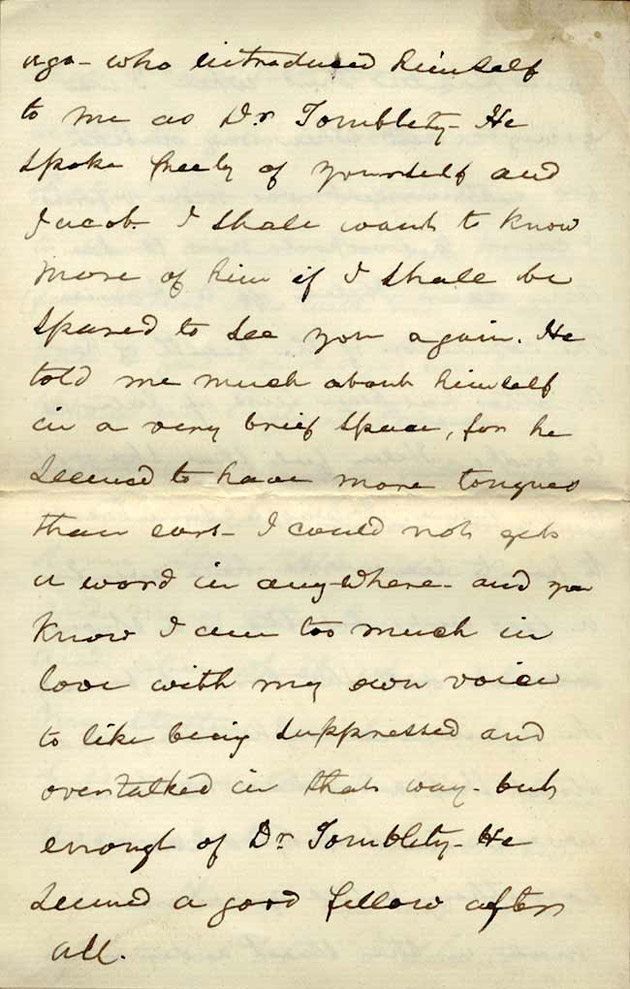 ago – who introduced himself
to me as Dr Tomblety – He
spoke freely of yourself and
Jacob. I shall want to know
more of him if I shall be
spared to see you again. He
told me much about himself
in a very brief space, for he
seemed to have more tongues
than ears – I could not get
a word in any-where – and you
know I am too much in
love with my own voice
to like being suppressed and
overtalked in that way – but
enough of Dr Tomblety – He
seemed a good fellow after
all.